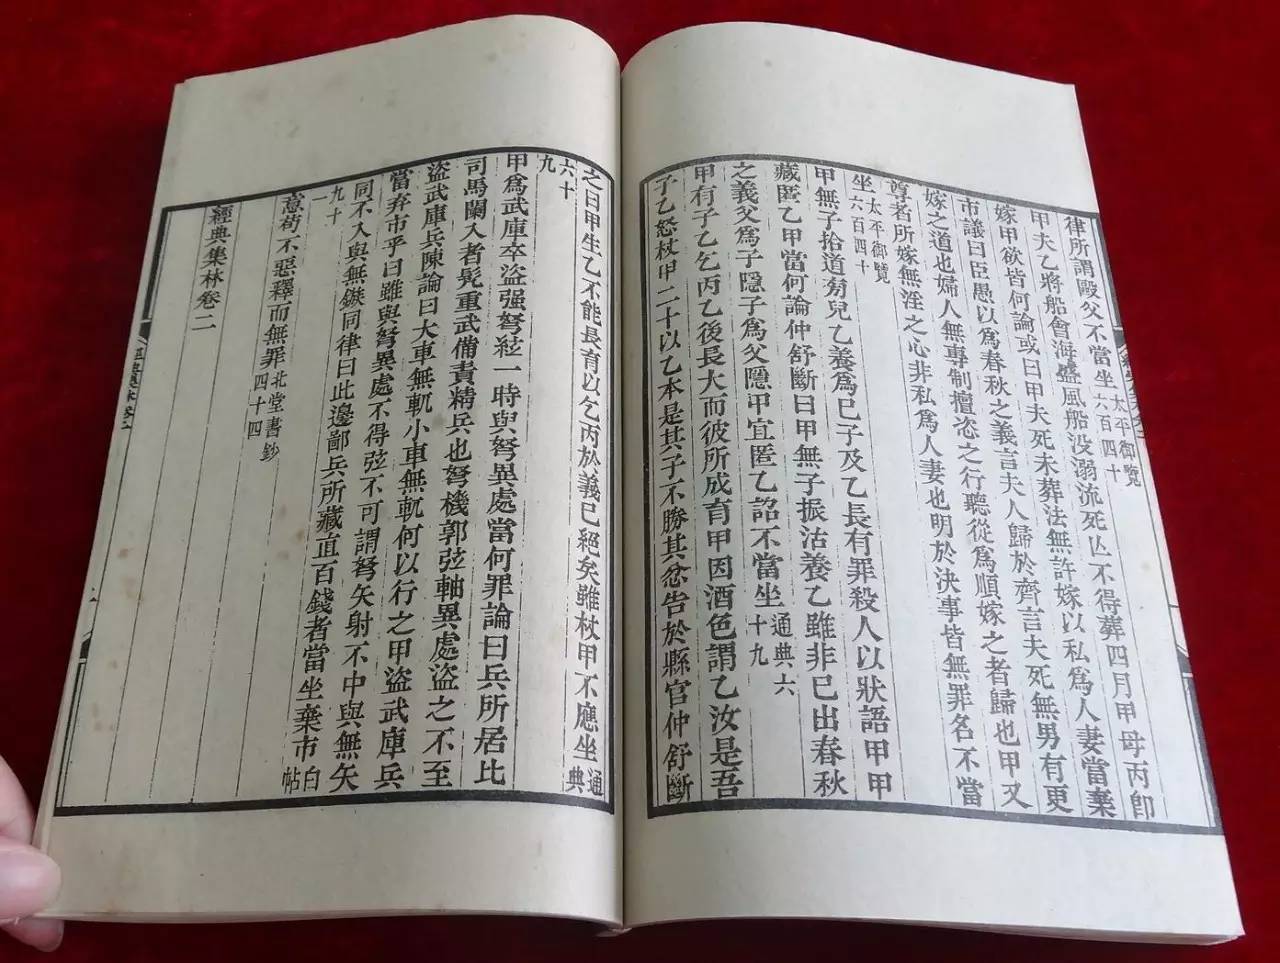 律所謂毆父不當坐太平御覽六百四十
甲夫乙將船會海盛風船没溺流死亾不得葬四月甲母丙卽
嫁甲欲皆何論或曰甲夫死未葬法無許嫁以私爲人妻當棄
市議曰臣愚以爲春秋之義言夫人歸於齊言夫死無男有更
嫁之道也婦人無專制擅恣之行聽從爲順嫁之者歸也甲又
尊者所嫁無淫之心非私爲人妻也明於決事皆無罪名不當
坐太平御覽六百四十
甲無子拾道旁兒乙養爲已子及乙長有罪殺人以狀語甲甲
藏匿乙甲當何論仲舒斷曰甲無子振活養乙雖非已出春秋
之義父爲子隱子爲父隱甲宜匿乙詔不當坐通典六十九
甲有子乙乞丙乙後長大而彼所成育甲因酒色謂乙汝是吾
子乙怒杖甲二十以乙本是其子不勝其忿告於縣官仲舒斷
之曰甲生乙不能長育以乞丙於義已絕矣雖杖甲不應坐通典
六十九
甲爲武庫卒盜强弩弦一時與弩異處當何罪論曰兵所居比
司馬闌入者髡重武備責精兵也弩機郭弦軸異處盜之不至
盜武庫兵陳論曰大車無輗小車無軏何以行之甲盜武庫兵
當弃市乎曰雖與弩異處不得弦不可謂弩矢射不中與無矢
同不入與無鏃同律曰此邊鄙兵所藏直百錢者當坐棄市白帖
九十一
意苟不惡釋而無罪北堂書鈔四十四
經典集林卷二
經典集林卷二